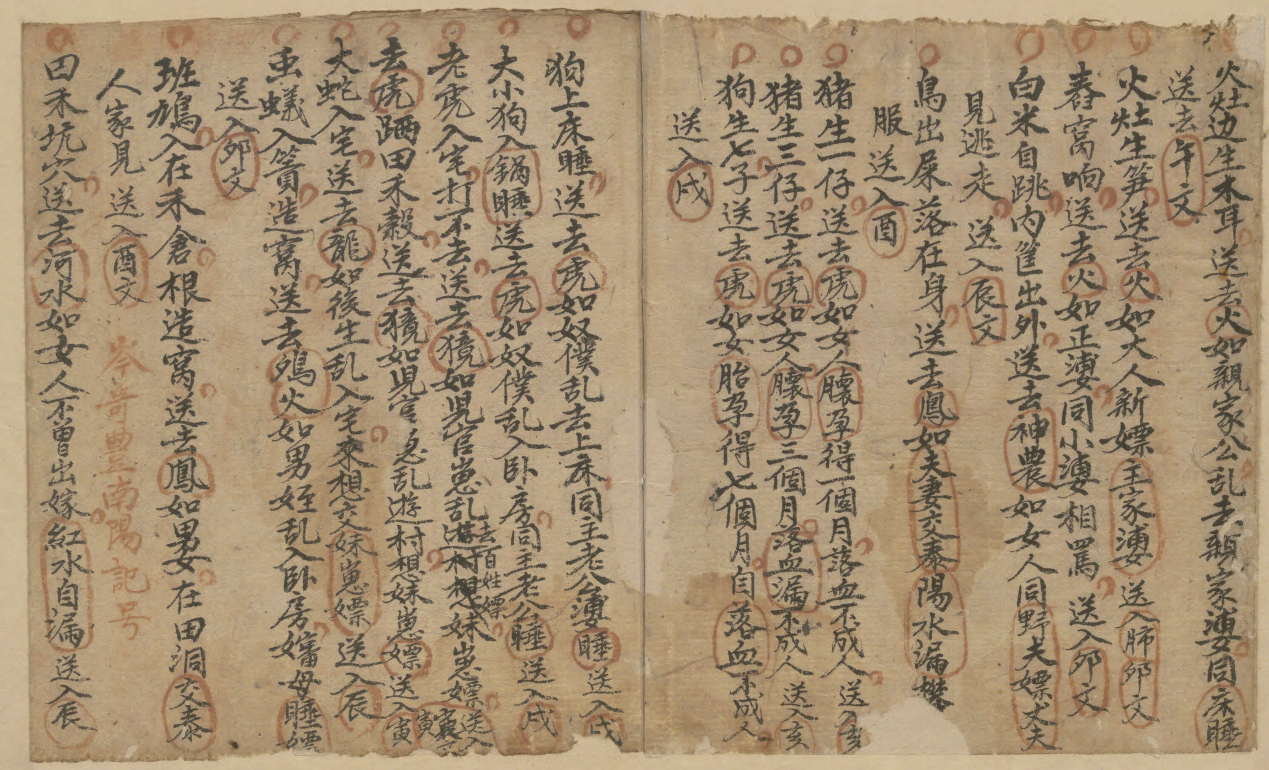 火灶边生木耳送去火如親家公乱去親家同床睡
送去午文
火灶生笋送去火如大人新嫖主家送入卯文
舂窝响送去火如正同小相罵送入卯文
白米自跳内筐出外送去神農如女人同野夫嫖丈夫
見逃走送入辰文
鳥出屎落在身送去鳳如夫妻交泰陽水漏
服送入酉
猪生一仔送去虎如女人懷孕得一個月落血不成人送入亥
猪生三仔送去虎如女人懷孕三個月落血漏不成人送入亥
狗生七子送去虎如女胎孕得七個月自落血不成人
送入戌
狗上床睡送去虎如奴僕乱去上床同主老公睡送入戌
大小狗入锅睡送去虎如奴僕乱入卧房同主老公睡送入戌
老虎入宅打不去送去獍如児官崽乱去百姓嫖村想妹崽嫖送入寅
去虎晒田禾穀送去獍如児官崽乱遊村想妹崽嫖送入寅
大蛇入宅送去龍如後生乱入宅来想交妹崽嫖送入辰
虫蟻入簀造窩送去鴉火如男姪乱入卧房嬸母睡嫖
送入卯文
班鳩入在禾倉根造窝送去鳳如男女在田洞交泰
人家見送入酉文
岑苛豊南陽記号
田禾坑穴送去河水如女人不曽出嫁紅水自漏送入辰